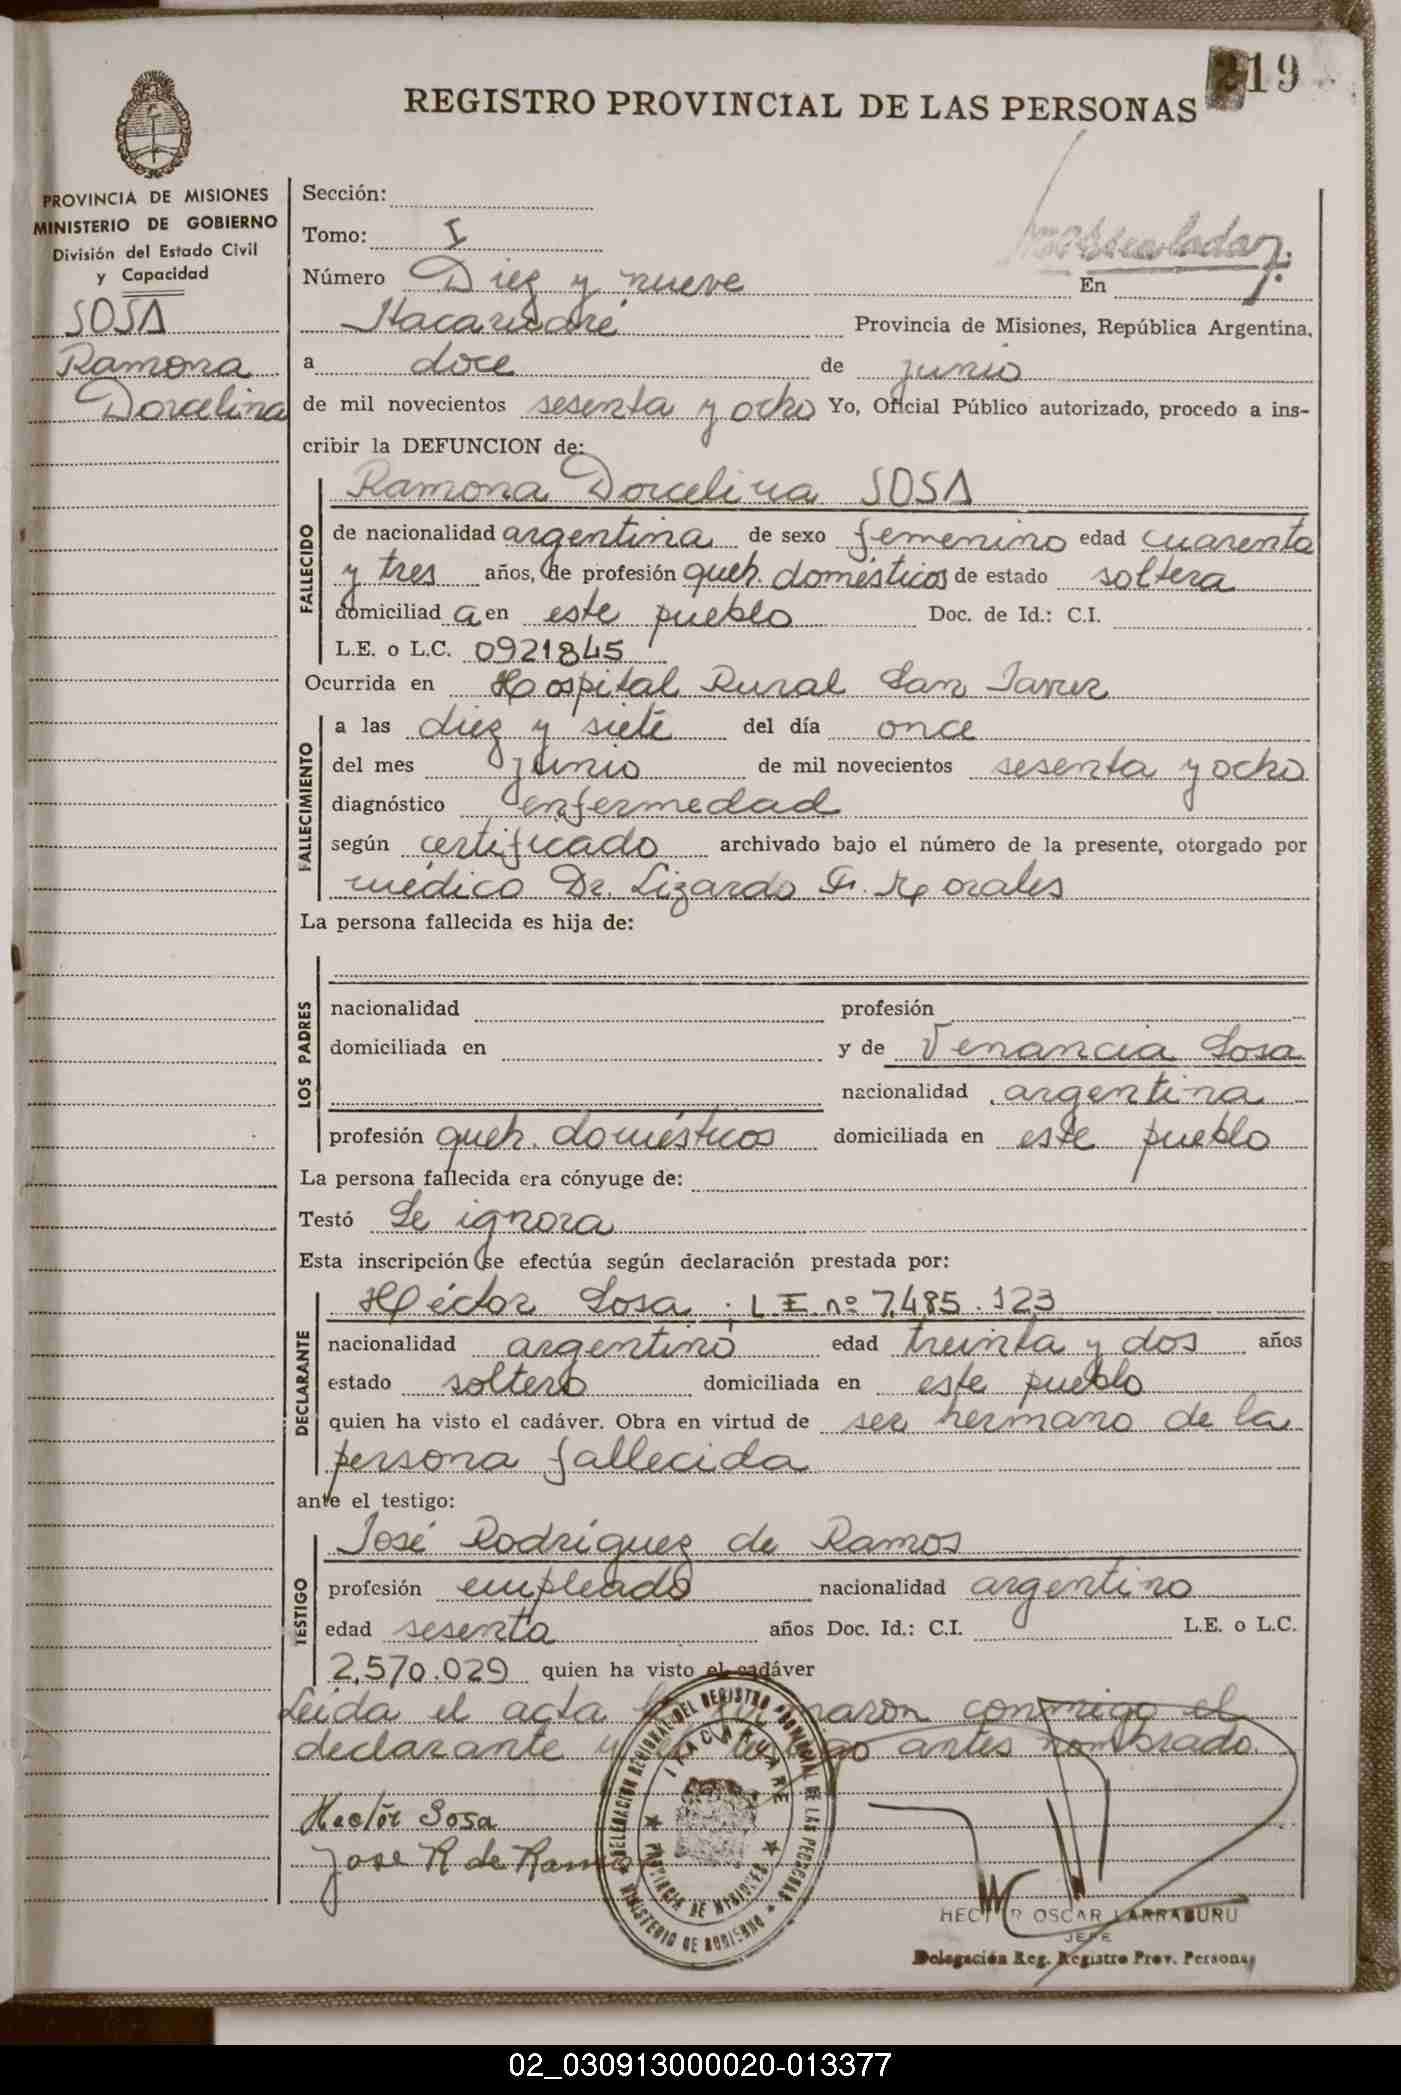 19
REGISTRO PROVINCIAL DE LAS PERSONAS
PROVINCIA DE MISIONES
MINISTERIO DE GOBIERNO
División del Estado Civil
y Capacidad
SOSA
Ramona
Dorcelina
Sección:
Tomo: I
Número Diez y nueve En
Itacaruaré Provincia de Misiones, República Argentina,
a doce de junio
de mil novecientos sesenta y ocho Yo, Oficial Público autorizado, procedo a ins-
cribir la DEFUNCION de:
FALLECIDO
Ramona Dorcelina SOSA
de nacionalidad argentina de sexo femenino edad cuarenta
y tres años, de profesión queh. domésticos de estado soltera
domiciliad a en este pueblo Doc. de Id.: C.I.
L.E. o L.C. 0921845
Ocurrida en Hospital Rural San Javier
FALLECIMIENTO
a las diez y siete del día once
del mes junio de mil novecientos sesenta y ocho
diagnóstico enfermedad
según certificado archivado bajo el número de la presente, otorgado por
médico Dr. Lizardo F. Morales
La persona fallecida es hija de:
LOS PADRES
nacionalidad profesión
domiciliada en y de Venancia Sosa
nacionalidad argentina
profesión queh. domésticos domiciliada en este pueblo
La persona fallecida era cónyuge de:
Testó Se ignora
Esta inscripción se efectúa según declaración prestada por:
DECLARANTE
Héctor Sosa; L E. nº 7.485.123
nacionalidad argentino edad treinta y dos años
estado soltero domiciliada en este pueblo
quien ha visto el cadáver. Obra en virtud de ser hermano de la
persona fallecida
ante el testigo:
TESTIGO
José Rodríguez de Ramos
profesión empleado nacionalidad argentino
edad sesenta años Doc. Id.: C.I. L.E. o L.C.
2.570.029 quien ha visto el cadáver
Leida el acta la firmaron conmigo el
declarante y el testigo antes nombrado.
Hector Sosa
Jose R de Ramos
DELEGACION REGIONAL DEL REGISTRO PROVINCIAL DE LAS PERSONAS
ITACARUARE
PROVINCIA DE MISIONES
MINISTERIO DE GOBIERNO
HECTOR OSCAR LARRABURU
JEFE
Delegación Reg. Registro Prov. Personas
02_030913000020-013377